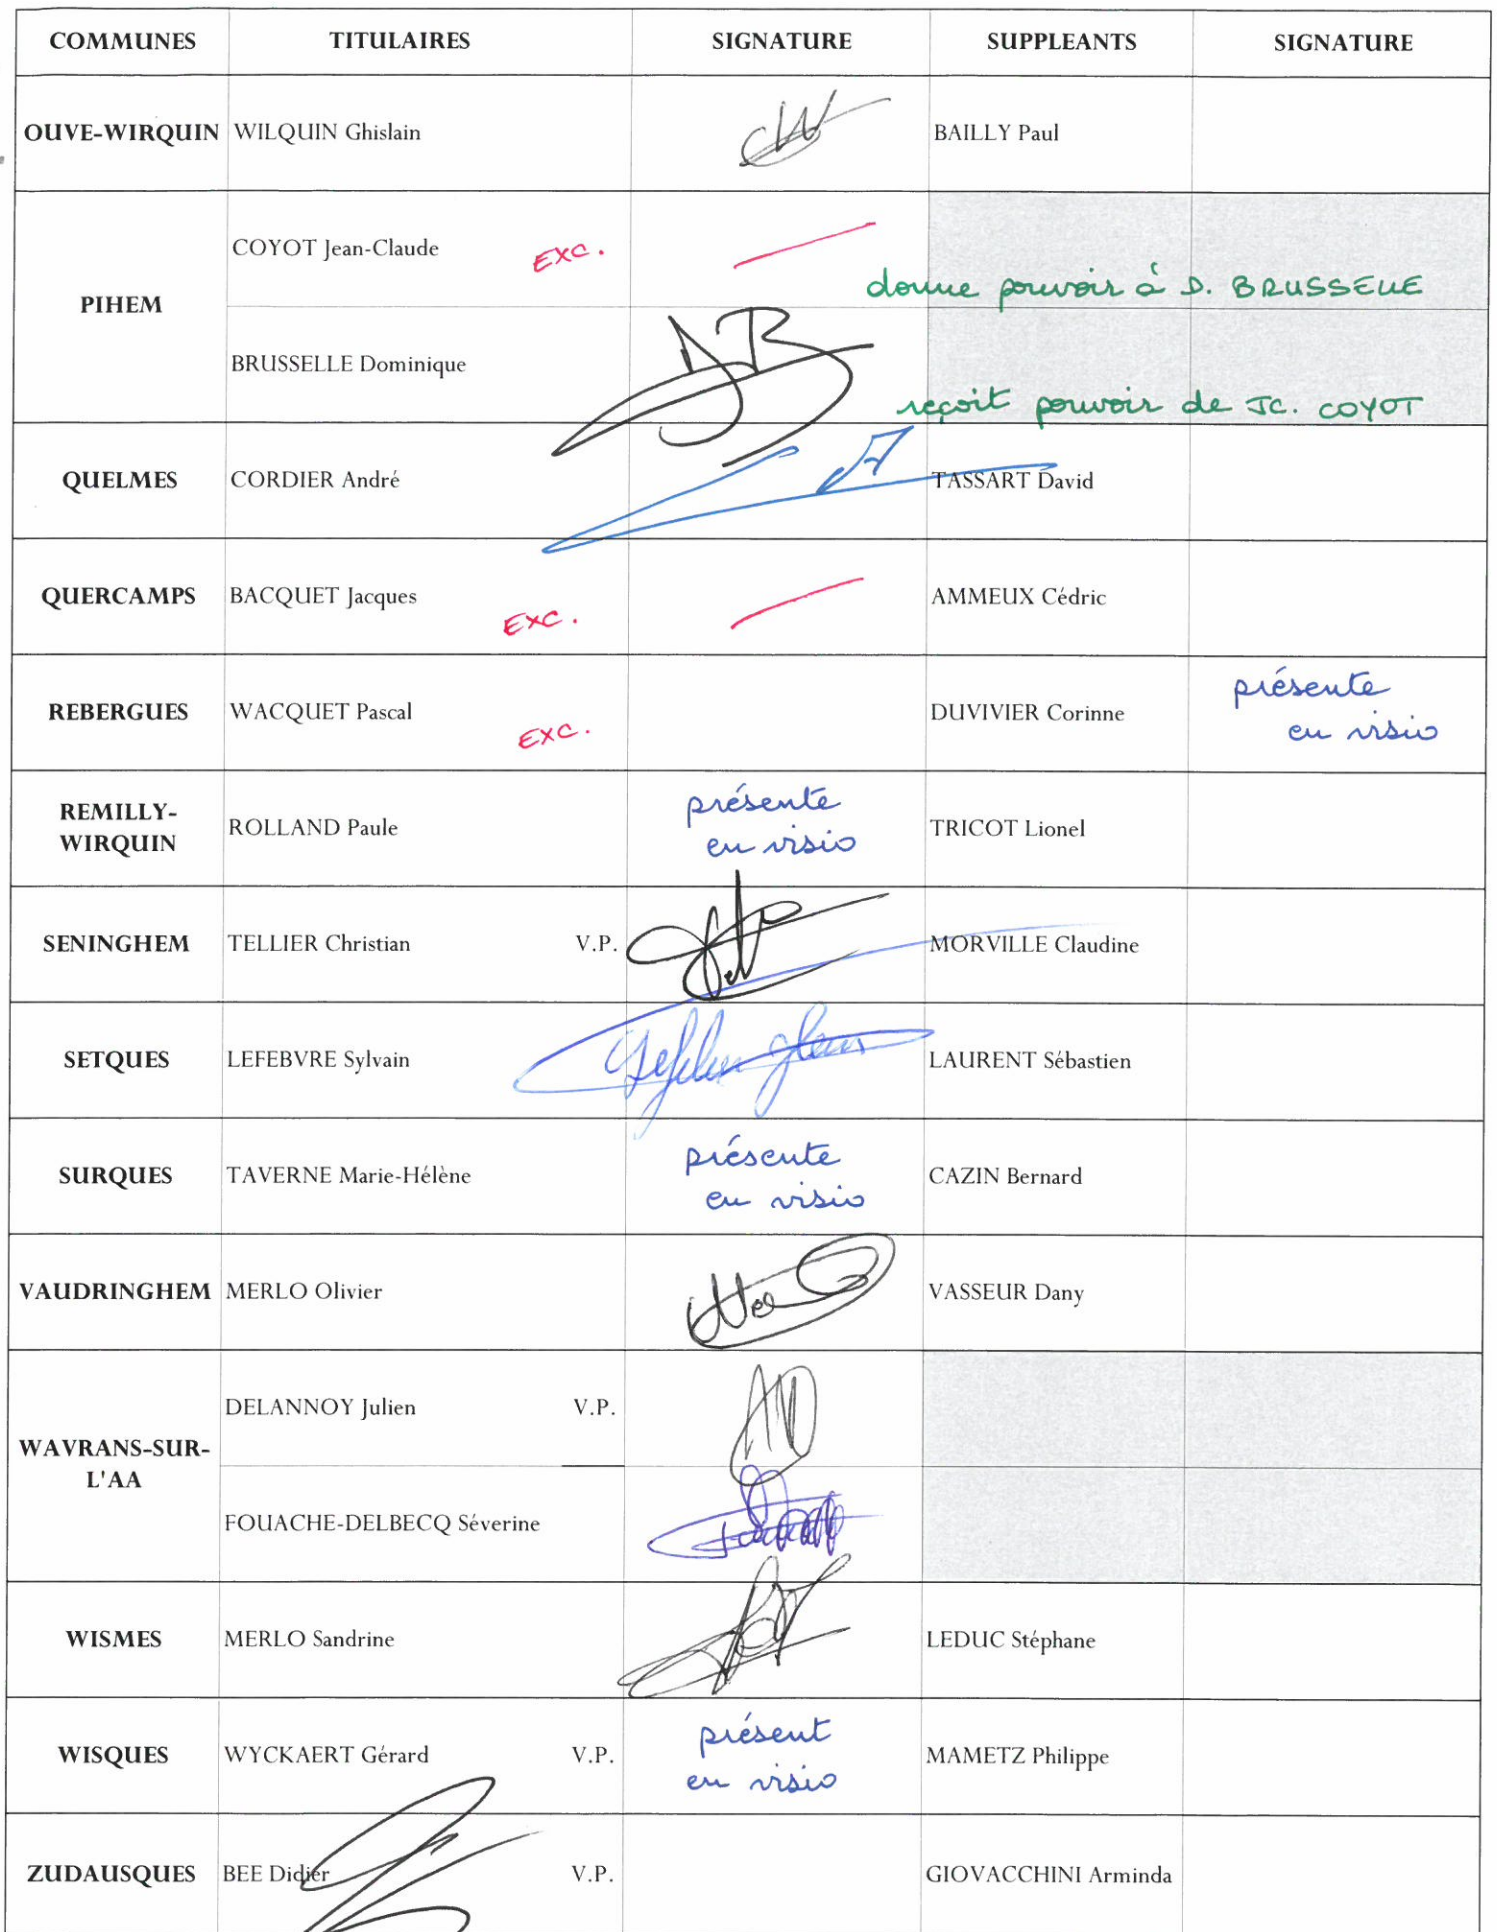 COMMUNES TITULAIRES SIGNATURE SUPPLEANTS SIGNATURE
OUVE-WIRQUIN WILQUIN Ghislain BAILLY Paul
PIHEM
COYOT Jean-Claude EXC.
donne pouvoir à D. BRUSSELLE
BRUSSELLE Dominique
reçoit pouvoir de JC. COYOT
QUELMES CORDIER André TASSART David
QUERCAMPS BACQUET Jacques EXC. AMMEUX Cédric
REBERGUES WACQUET Pascal EXC. DUVIVIER Corinne présente
en visio
REMILLY-
WIRQUIN
ROLLAND Paule présente
en visio
TRICOT Lionel
SENINGHEM TELLIER Christian V.P. MORVILLE Claudine
SETQUES LEFEBVRE Sylvain LAURENT Sébastien
SURQUES TAVERNE Marie-Hélène présente
en visio
CAZIN Bernard
VAUDRINGHEM MERLO Olivier VASSEUR Dany
WAVRANS-SUR-
L'AA
DELANNOY Julien V.P.
FOUACHE-DELBECQ Séverine
WISMES MERLO Sandrine LEDUC Stéphane
WISQUES WYCKAERT Gérard V.P. présent
en visio
MAMETZ Philippe
ZUDAUSQUES BEE Didier V.P. GIOVACCHINI Arminda